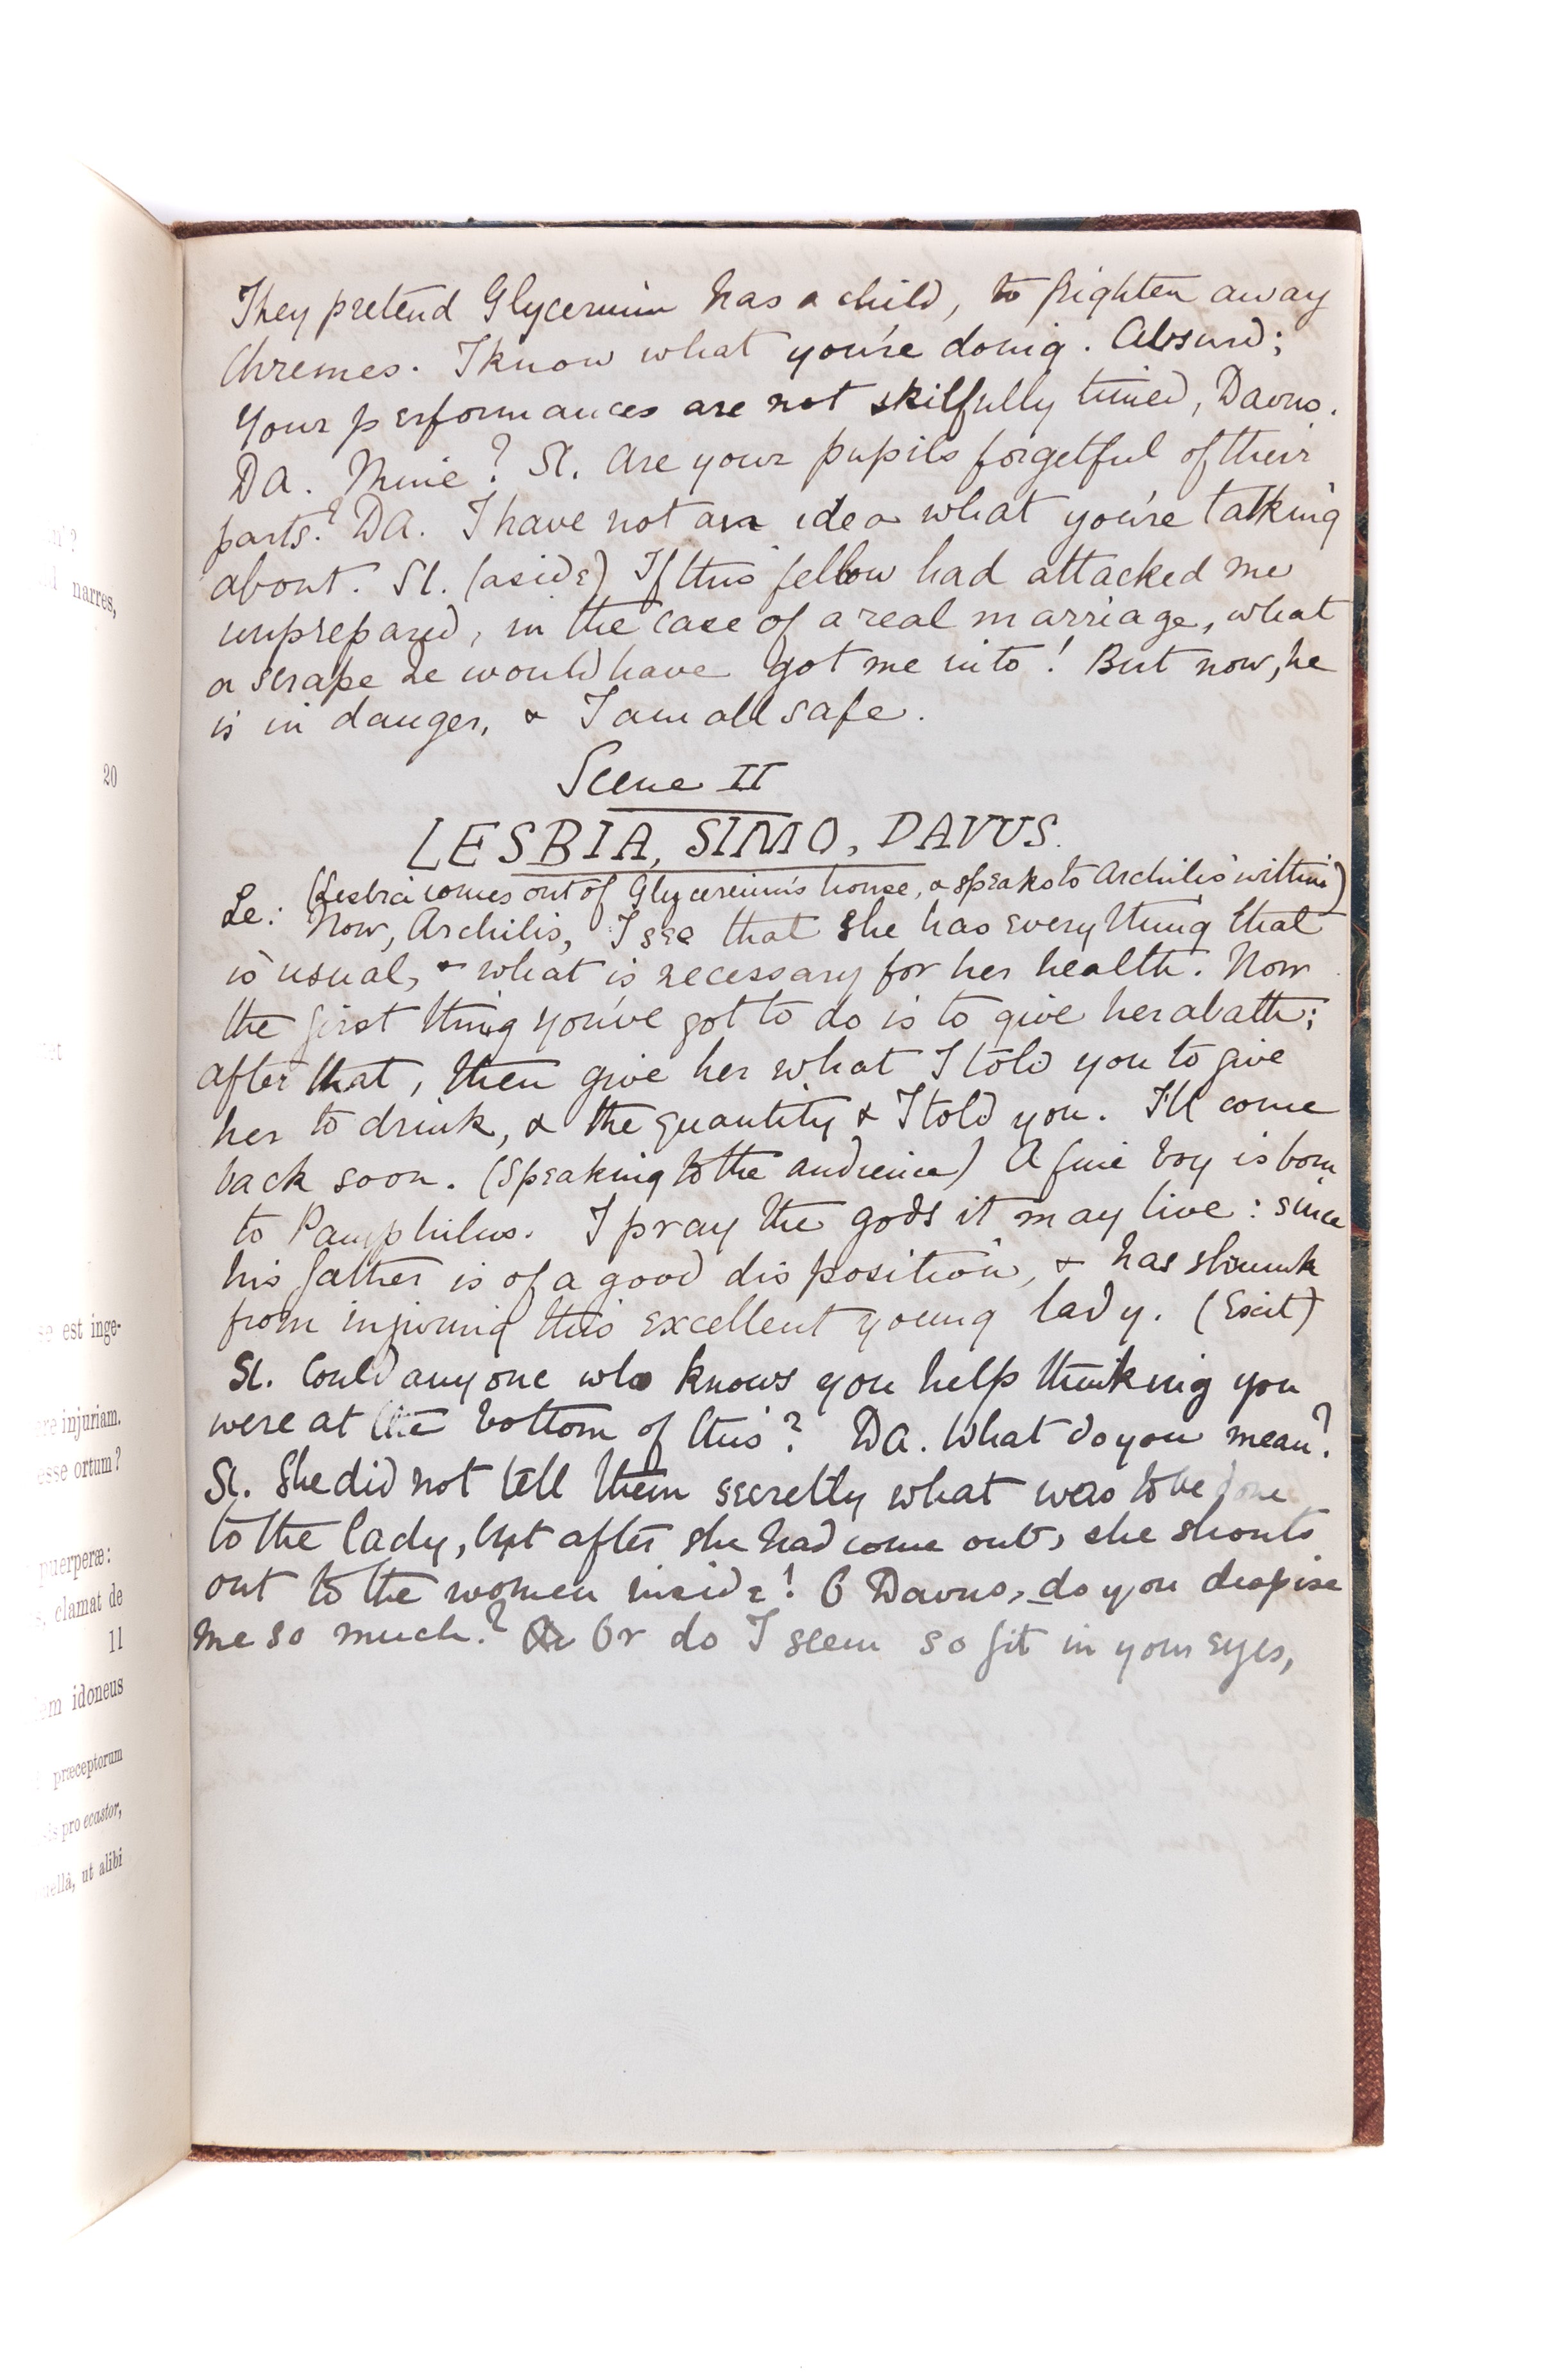 They pretend Glycerium has a child, to frighten away
Chremes. I know what you're doing. Absurd;
Your performances are not skilfully timed, Davus.
DA. Mine? SI. Are your pupils forgetful of their
parts? DA. I have not an idea what you're talking
about. SI. (aside) If this fellow had attacked me
unprepared, in the case of a real marriage, what
a scrape he would have got me into! But now, he
is in danger, & I am all safe.
Scene II
LESBIA, SIMO, DAVUS.
(Lesbia comes out of Glycerium's house, & speaks to Archilis within)
Le: Now, Archilis, I see that she has everything that
is usual, & what is necessary for her health. Now
the first thing you've got to do is to give her a bath;
after that, then give her what I told you to give
her to drink, & the quantity & I told you. I'll come
back soon. (Speaking to the audience) A fine boy is born
to Pamphilus. I pray the gods it may live: since
his father is of a good disposition, & has shrunk
from injuring this excellent young lady. (Exit)
SI. Could anyone who knows you help thinking you
were at the bottom of this? DA. What do you mean?
SI. She did not tell them secretly what was to be done
to the lady, but after she had come out, she shouts
out to the women inside! O Davus, do you despise
me so much? Or do I seem so fit in your eyes,
narres,
20
est inge-
injuriam.
esse ortum?
puerperæ:
clamat de
11
idoneus
præceptorum
pro ecastor,
ut alibi